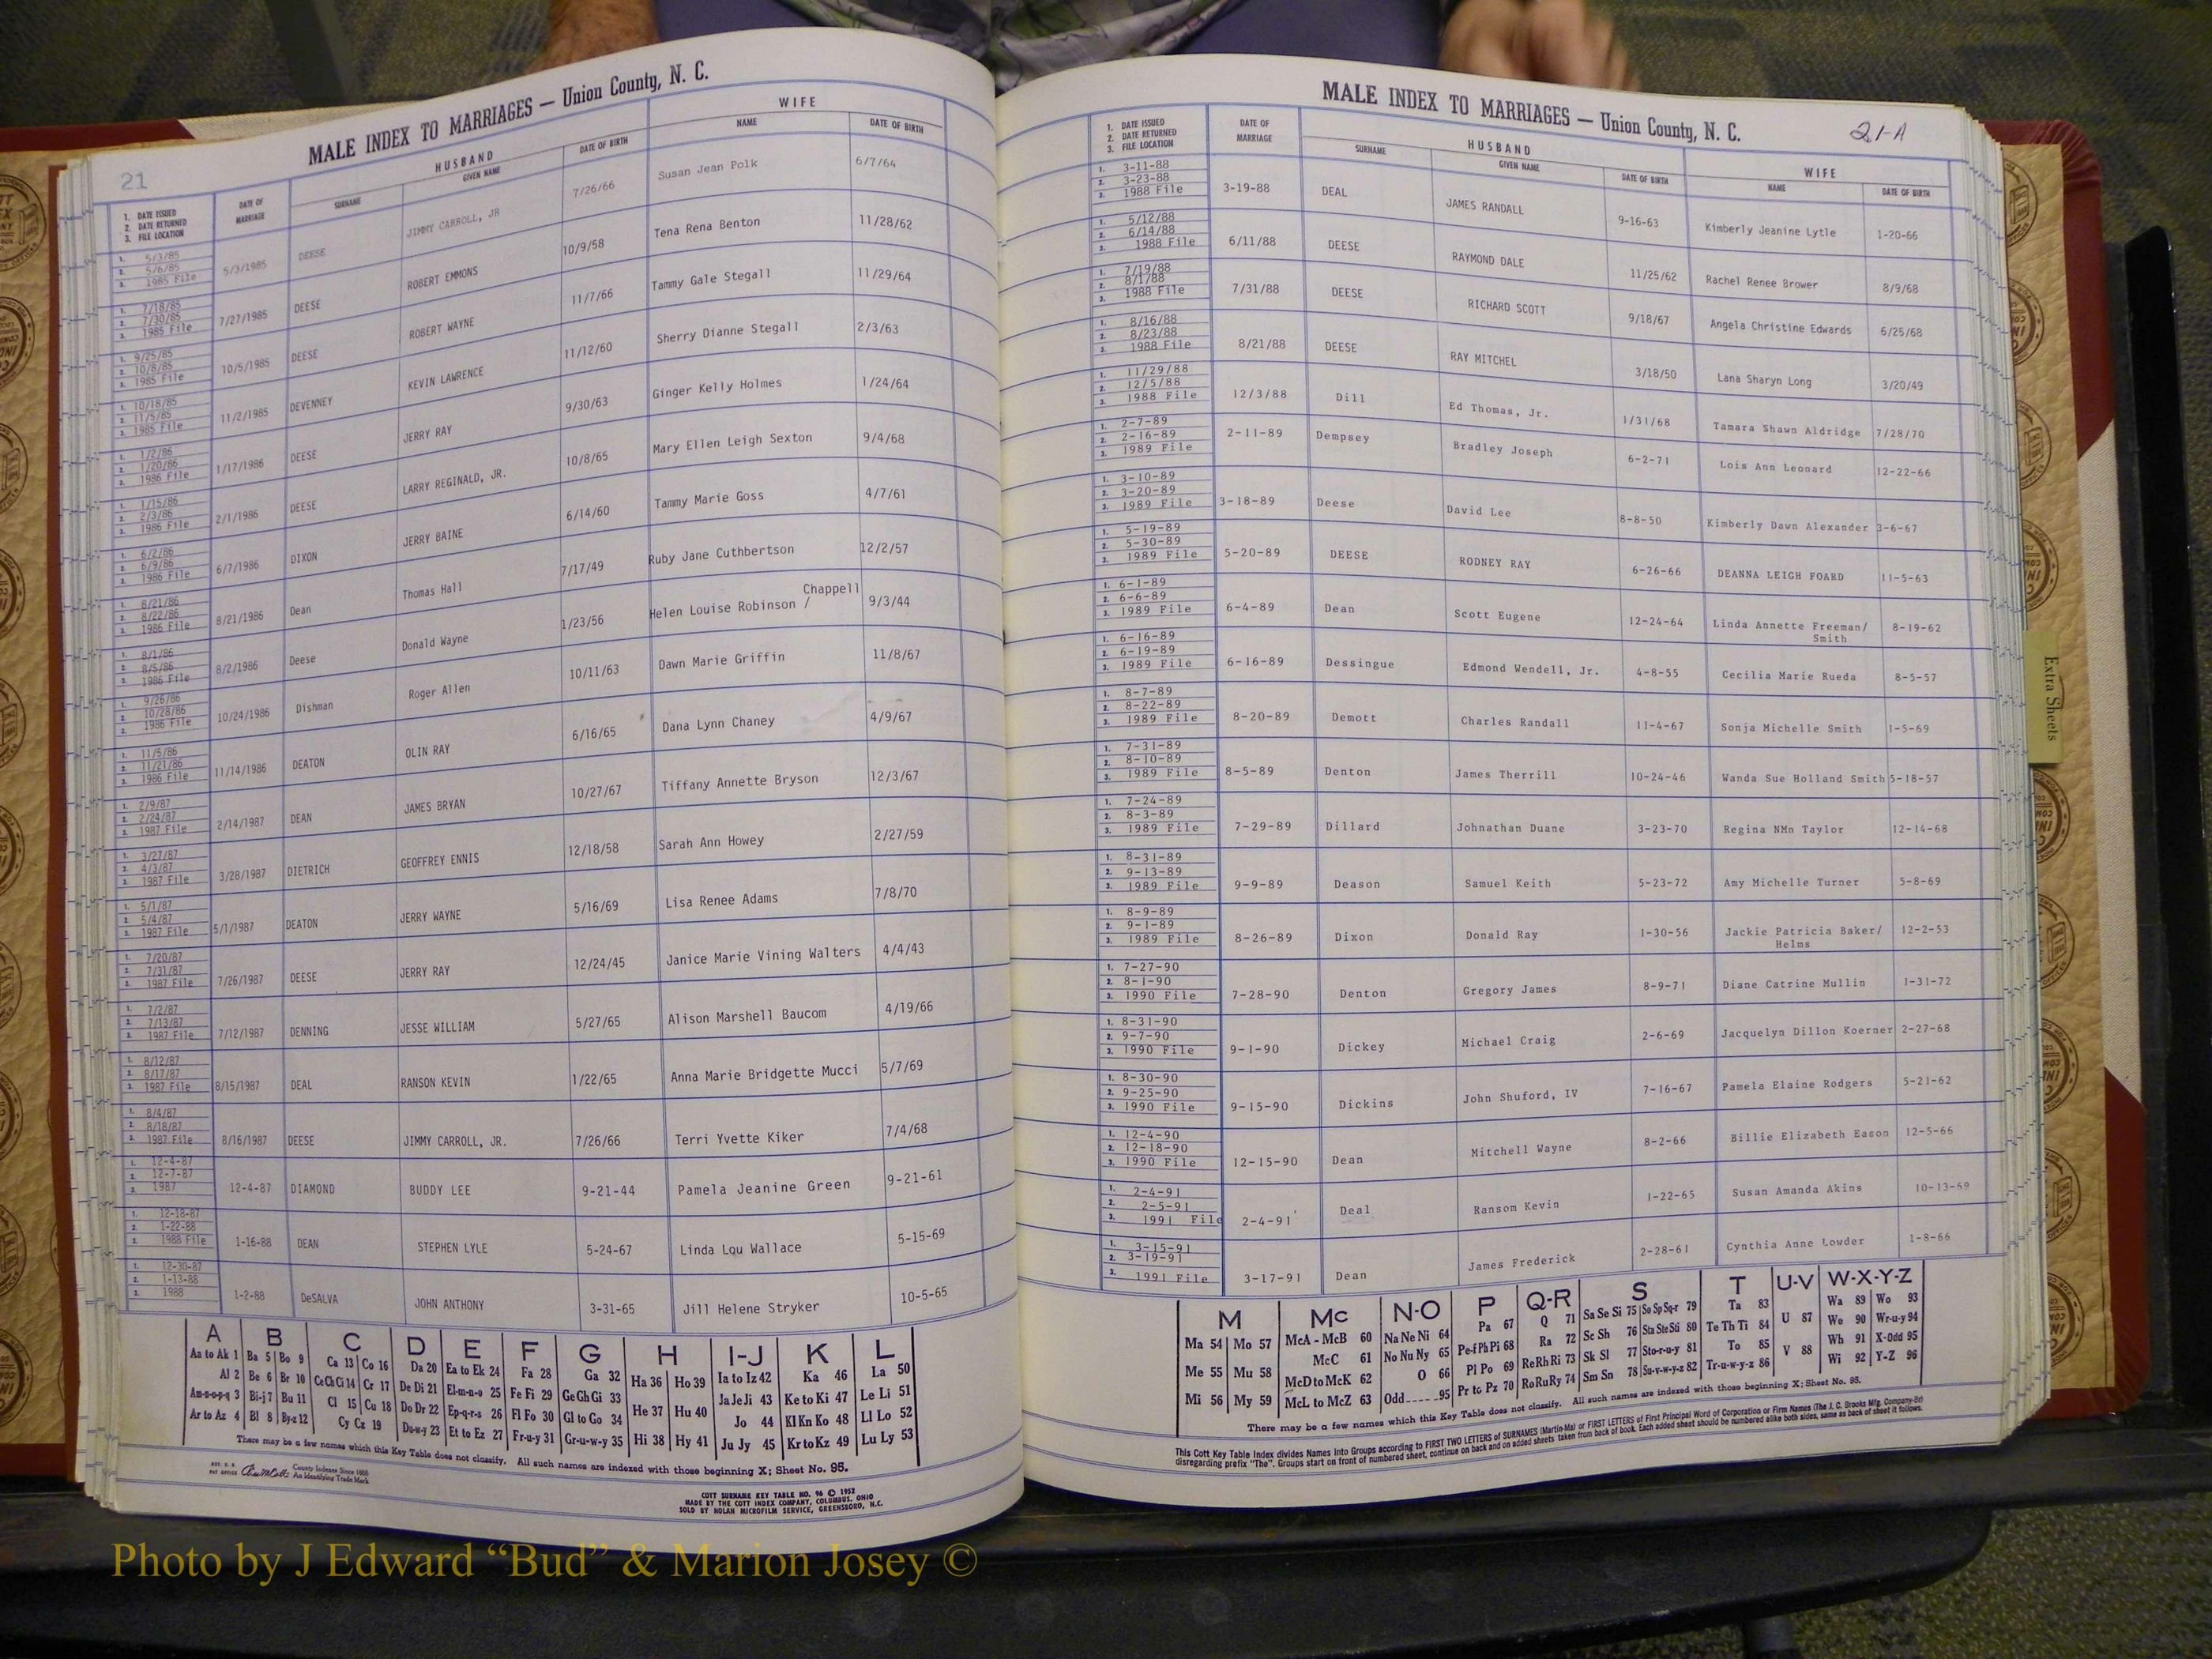 MALE INDEX TO MARRIAGES — Union County, N. C.
21
1. DATE ISSUED
2. DATE RETURNED
3. FILE LOCATION
DATE OF MARRIAGE
HUSBAND
SURNAME GIVEN NAME DATE OF BIRTH
WIFE
NAME DATE OF BIRTH
1. 5/3/85
2. 5/6/85
3. 1985 File
5/3/1985 DEESE JIMMY CARROLL, JR 7/26/66 Susan Jean Polk 6/7/64
1. 7/18/85
2. 7/30/85
3. 1985 File
7/27/1985 DEESE ROBERT EMMONS 10/9/58 Tena Rena Benton 11/28/62
1. 9/25/85
2. 10/8/85
3. 1985 File
10/5/1985 DEESE ROBERT WAYNE 11/7/66 Tammy Gale Stegall 11/29/64
1. 10/18/85
2. 11/5/85
3. 1985 File
11/2/1985 DEVENNEY KEVIN LAWRENCE 11/12/60 Sherry Dianne Stegall 2/3/63
1. 1/2/86
2. 1/20/86
3. 1986 File
1/17/1986 DEESE JERRY RAY 9/30/63 Ginger Kelly Holmes 1/24/64
1. 1/15/86
2. 2/3/86
3. 1986 File
2/1/1986 DEESE LARRY REGINALD, JR. 10/8/65 Mary Ellen Leigh Sexton 9/4/68
1. 6/2/86
2. 6/9/86
3. 1986 File
6/7/1986 DIXON JERRY BAINE 6/14/60 Tammy Marie Goss 4/7/61
1. 8/21/86
2. 8/22/86
3. 1986 File
8/21/1986 Dean Thomas Hall 7/17/49 Ruby Jane Cuthbertson 12/2/57
1. 8/1/86
2. 8/5/86
3. 1986 File
Chappell
8/2/1986 Deese Donald Wayne 1/23/56 Helen Louise Robinson / 9/3/44
1. 9/26/86
2. 10/28/86
3. 1986 File
10/24/1986 Dishman Roger Allen 10/11/63 Dawn Marie Griffin 11/8/67
1. 11/5/86
2. 11/21/86
3. 1986 File
11/14/1986 DEATON OLIN RAY 6/16/65 Dana Lynn Chaney 4/9/67
1. 2/9/87
2. 2/24/87
3. 1987 File
2/14/1987 DEAN JAMES BRYAN 10/27/67 Tiffany Annette Bryson 12/3/67
1. 3/27/87
2. 4/3/87
3. 1987 File
3/28/1987 DIETRICH GEOFFREY ENNIS 12/18/58 Sarah Ann Howey 2/27/59
1. 5/1/87
2. 5/4/87
3. 1987 File
5/1/1987 DEATON JERRY WAYNE 5/16/69 Lisa Renee Adams 7/8/70
1. 7/20/87
2. 7/31/87
3. 1987 File
7/26/1987 DEESE JERRY RAY 12/24/45 Janice Marie Vining Walters 4/4/43
1. 7/2/87
2. 7/13/87
3. 1987 File
7/12/1987 DENNING JESSE WILLIAM 5/27/65 Alison Marshell Baucom 4/19/66
1. 8/12/87
2. 8/17/87
3. 1987 File
8/15/1987 DEAL RANSON KEVIN 1/22/65 Anna Marie Bridgette Mucci 5/7/69
1. 8/4/87
2. 8/18/87
3. 1987 File
8/16/1987 DEESE JIMMY CARROLL, JR. 7/26/66 Terri Yvette Kiker 7/4/68
1. 12-4-87
2. 12-7-87
3. 1987
12-4-87 DIAMOND BUDDY LEE 9-21-44 Pamela Jeanine Green 9-21-61
1. 12-18-87
2. 1-22-88
3. 1988 File
1-16-88 DEAN STEPHEN LYLE 5-24-67 Linda Lqu Wallace 5-15-69
1. 12-30-87
2. 1-13-88
3. 1988
1-2-88 DeSALVA JOHN ANTHONY 3-31-65 Jill Helene Stryker 10-5-65
A B C D E F G H I-J K L
Aa to Ak 1 Ba 5 Bo 9 Ca 13 Co 16 Da 20 Ea to Ek 24 Fa 28 Ga 32 Ha 36 Ho 39 Ia to Iz 42 Ka 46 La 50
Al 2 Be 6 Br 10 Ce Ch Ci 14 Cr 17 De Di 21 El-m-n-o 25 Fe Fi 29 Ge Gh Gi 33 He 37 Hu 40 Ja Je Ji 43 Ke to Ki 47 Le Li 51
Am-n-o-p-q 3 Bi-j 7 Bu 11 Cl 15 Cu 18 Do Dr 22 Ep-q-r-s 26 Fl Fo 30 Gl to Go 34 Hi 38 Hy 41 Jo 44 Kl Kn Ko 48 Ll Lo 52
Ar to Az 4 Bl 8 By-z 12 Cy Cz 19 Du-w-y 23 Et to Ez 27 Fr-u-y 31 Gr-u-w-y 35 Ju Jy 45 Kr to Kz 49 Lu Ly 53
There may be a few names which this Key Table does not classify. All such names are indexed with those beginning X; Sheet No. 95.
County Indexes Since 1888
An Identifying Trade Mark
COTT SURNAME KEY TABLE NO. 96 © 1952
MADE BY THE COTT INDEX COMPANY, COLUMBUS, OHIO
SOLD BY NOLAN MICROFILM SERVICE, GREENSBORO, N.C.
MALE INDEX TO MARRIAGES — Union County, N. C.
21-A
1. DATE ISSUED
2. DATE RETURNED
3. FILE LOCATION
DATE OF MARRIAGE
HUSBAND
SURNAME GIVEN NAME DATE OF BIRTH
WIFE
NAME DATE OF BIRTH
1. 3-11-88
2. 3-23-88
3. 1988 File
3-19-88 DEAL JAMES RANDALL 9-16-63 Kimberly Jeanine Lytle 1-20-66
1. 5/12/88
2. 6/14/88
3. 1988 File
6/11/88 DEESE RAYMOND DALE 11/25/62 Rachel Renee Brower 8/9/68
1. 7/19/88
2. 8/1/88
3. 1988 File
7/31/88 DEESE RICHARD SCOTT 9/18/67 Angela Christine Edwards 6/25/68
1. 8/16/88
2. 8/23/88
3. 1988 File
8/21/88 DEESE RAY MITCHEL 3/18/50 Lana Sharyn Long 3/20/49
1. 11/29/88
2. 12/5/88
3. 1988 File
12/3/88 Dill Ed Thomas, Jr. 1/31/68 Tamara Shawn Aldridge 7/28/70
1. 2-7-89
2. 2-16-89
3. 1989 File
2-11-89 Dempsey Bradley Joseph 6-2-71 Lois Ann Leonard 12-22-66
1. 3-10-89
2. 3-20-89
3. 1989 File
3-18-89 Deese David Lee 8-8-50 Kimberly Dawn Alexander 3-6-67
1. 5-19-89
2. 5-30-89
3. 1989 File
5-20-89 DEESE RODNEY RAY 6-26-66 DEANNA LEIGH FOARD 11-5-63
1. 6-1-89
2. 6-6-89
3. 1989 File
6-4-89 Dean Scott Eugene 12-24-64 Linda Annette Freeman/ 8-19-62
Smith
1. 6-16-89
2. 6-19-89
3. 1989 File
6-16-89 Dessingue Edmond Wendell, Jr. 4-8-55 Cecilia Marie Rueda 8-5-57
1. 8-7-89
2. 8-22-89
3. 1989 File
8-20-89 Demott Charles Randall 11-4-67 Sonja Michelle Smith 1-5-69
1. 7-31-89
2. 8-10-89
3. 1989 File
8-5-89 Denton James Therrill 10-24-46 Wanda Sue Holland Smith 5-18-57
1. 7-24-89
2. 8-3-89
3. 1989 File
7-29-89 Dillard Johnathan Duane 3-23-70 Regina NMn Taylor 12-14-68
1. 8-31-89
2. 9-13-89
3. 1989 File
9-9-89 Deason Samuel Keith 5-23-72 Amy Michelle Turner 5-8-69
1. 8-9-89
2. 9-1-89
3. 1989 File
8-26-89 Dixon Donald Ray 1-30-56 Jackie Patricia Baker/ 12-2-53
Helms
1. 7-27-90
2. 8-1-90
3. 1990 File
7-28-90 Denton Gregory James 8-9-71 Diane Catrine Mullin 1-31-72
1. 8-31-90
2. 9-7-90
3. 1990 File
9-1-90 Dickey Michael Craig 2-6-69 Jacquelyn Dillon Koerner 2-27-68
1. 8-30-90
2. 9-25-90
3. 1990 File
9-15-90 Dickins John Shuford, IV 7-16-67 Pamela Elaine Rodgers 5-21-62
1. 12-4-90
2. 12-18-90
3. 1990 File
12-15-90 Dean Mitchell Wayne 8-2-66 Billie Elizabeth Eason 12-5-66
1. 2-4-91
2. 2-5-91
3. 1991 File
2-4-91 Deal Ransom Kevin 1-22-65 Susan Amanda Akins 10-13-69
1. 3-15-91
2. 3-19-91
3. 1991 File
3-17-91 Dean James Frederick 2-28-61 Cynthia Anne Lowder 1-8-66
M Mc N-O P Q-R S T U-V W-X-Y-Z
Ma 54 Mo 57 McA - McB 60 Na Ne Ni 64 Pa 67 Q 71 Sa Se Si 75 So Sp Sq-r 79 Ta 83 U 87 Wa 89 Wo 93
Me 55 Mu 58 McC 61 No Nu Ny 65 Pe-f Ph Pi 68 Ra 72 Sc Sh 76 Sta Ste Sti 80 Te Th Ti 84 V 88 We 90 Wr-u-y 94
Mi 56 My 59 McD to McK 62 O 66 Pl Po 69 Re Rh Ri 73 Sk Sl 77 Sto-r-u-y 81 To 85 Wh 91 X-Odd 95
McL to McZ 63 Odd 95 Pr to Pz 70 Ro Ru Ry 74 Sm Sn 78 Su-v-w-y-z 82 Tr-u-w-y-z 86 Wi 92 Y-Z 96
There may be a few names which this Key Table does not classify. All such names are indexed with those beginning X; Sheet No. 95.
This Cott Key Table Index divides Names Into Groups according to FIRST TWO LETTERS of SURNAMES (Martin-Ma) or FIRST LETTERS of First Principal Word of Corporation or Firm Names (The J. C. Brooks Mfg. Company-Br)
disregarding prefix "The". Groups start on front of numbered sheet, continue on back and on added sheets taken from back of book. Each added sheet should be numbered alike both sides, same as back of sheet it follows.
Extra Sheets
Photo by J Edward “Bud” & Marion Josey ©